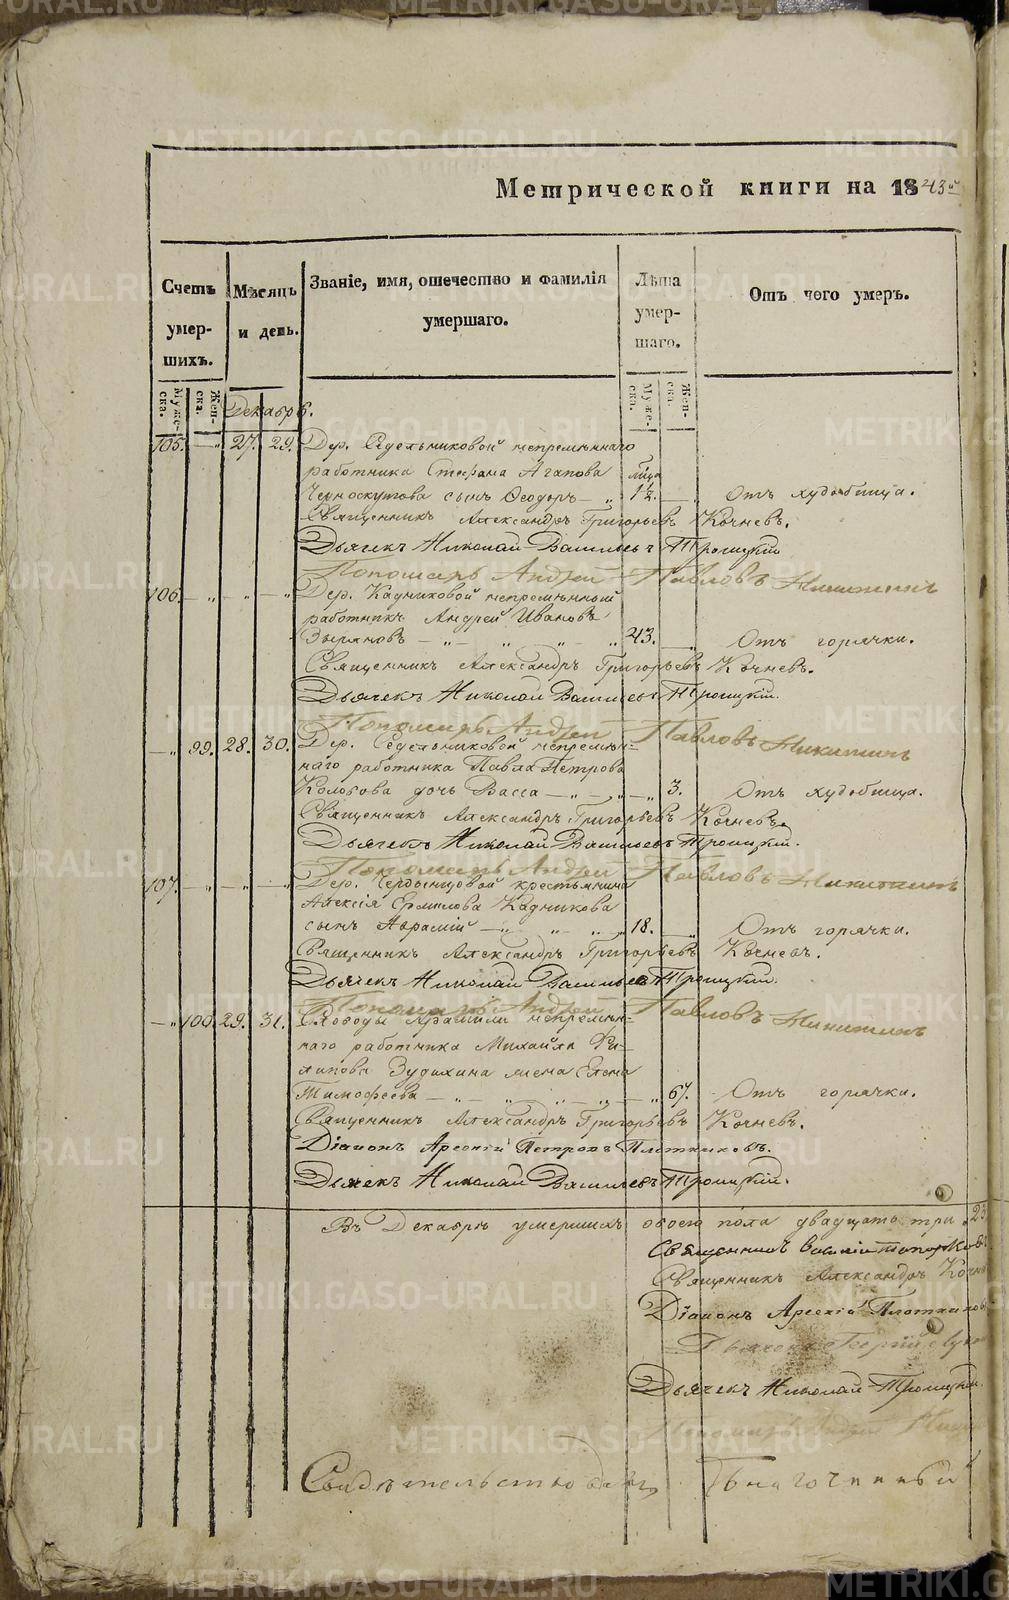 Метрической книги на 1843й
Счетъ умер-шихъ.
Мѣсяцъ и день.
Званіе, имя, отечество и фамилія умершаго.
Лѣта умер-шаго.
Отъ чего умеръ.
Муже-ска. Жен-ска.
Муже-ска. Жен-ска.
Декабрь.
105. — 27. 29. Дер. Сѣдельниковой непремѣннаго
работника Стефана Агапова
Черноскутова сынъ Ѳеодоръ — „ 1½. — Отъ худобища.
Священникъ Александръ Григорьевъ Кочневъ.
Дьячекъ Николай Васильевъ Троицкій
Пономарь Андрей Павловъ Никитинъ
106. — „ — „ — „ Дер. Кадниковой непремѣнный
работникъ Андрей Ивановъ
Зыряновъ — „ „ „ „ 43. — Отъ горячки.
Священникъ Александръ Григорьевъ Кочневъ.
Дьячекъ Николай Васильевъ Троицкій.
Пономарь Андрей Павловъ Никитинъ
— „ 99. 28. 30. Дер. Седельниковой непремѣн-
наго работника Павла Петрова
Колобова дочь Васса — „ — „ — „ 3. Отъ худобища.
Священникъ Александръ Григорьевъ Кочневъ.
Дьячекъ Николай Васильевъ Троицкій.
Пономарь Андрей Павловъ Никитинъ
107. — „ — „ — „ Дер. Чердынцовой крестьянина
Алексія Ермилова Кадникова
сынъ Авраамій — „ „ „ 18. — Отъ горячки.
Священникъ Александръ Григорьевъ Кочневъ.
Дьячекъ Николай Васильевъ Троицкій.
Пономарь Андрей Павловъ Никитинъ
— „ 100. 29. 31. Слободы Арамили непремѣн-
наго работника Михайла Фи-
липова Зудихина жена Елена
Тимофеева — „ — „ — „ — „ 67. Отъ горячки.
Священникъ Александръ Григорьевъ Кочневъ.
Діаконъ Арсеній Петровъ Плотниковъ.
Дьячекъ Николай Васильевъ Троицкій.
Въ Декабрѣ умершихъ обоего пола двадцать три 23
Священникъ Василій
Священникъ Александръ Кочне
Діаконъ Арсеній Плотников
Дьячекъ Георгій
Дьячекъ Николай Троицкій.
Пономарь Андрей Ники
Свидѣтельствовалъ Благочинный
METRIKI.GASO-URAL.RU